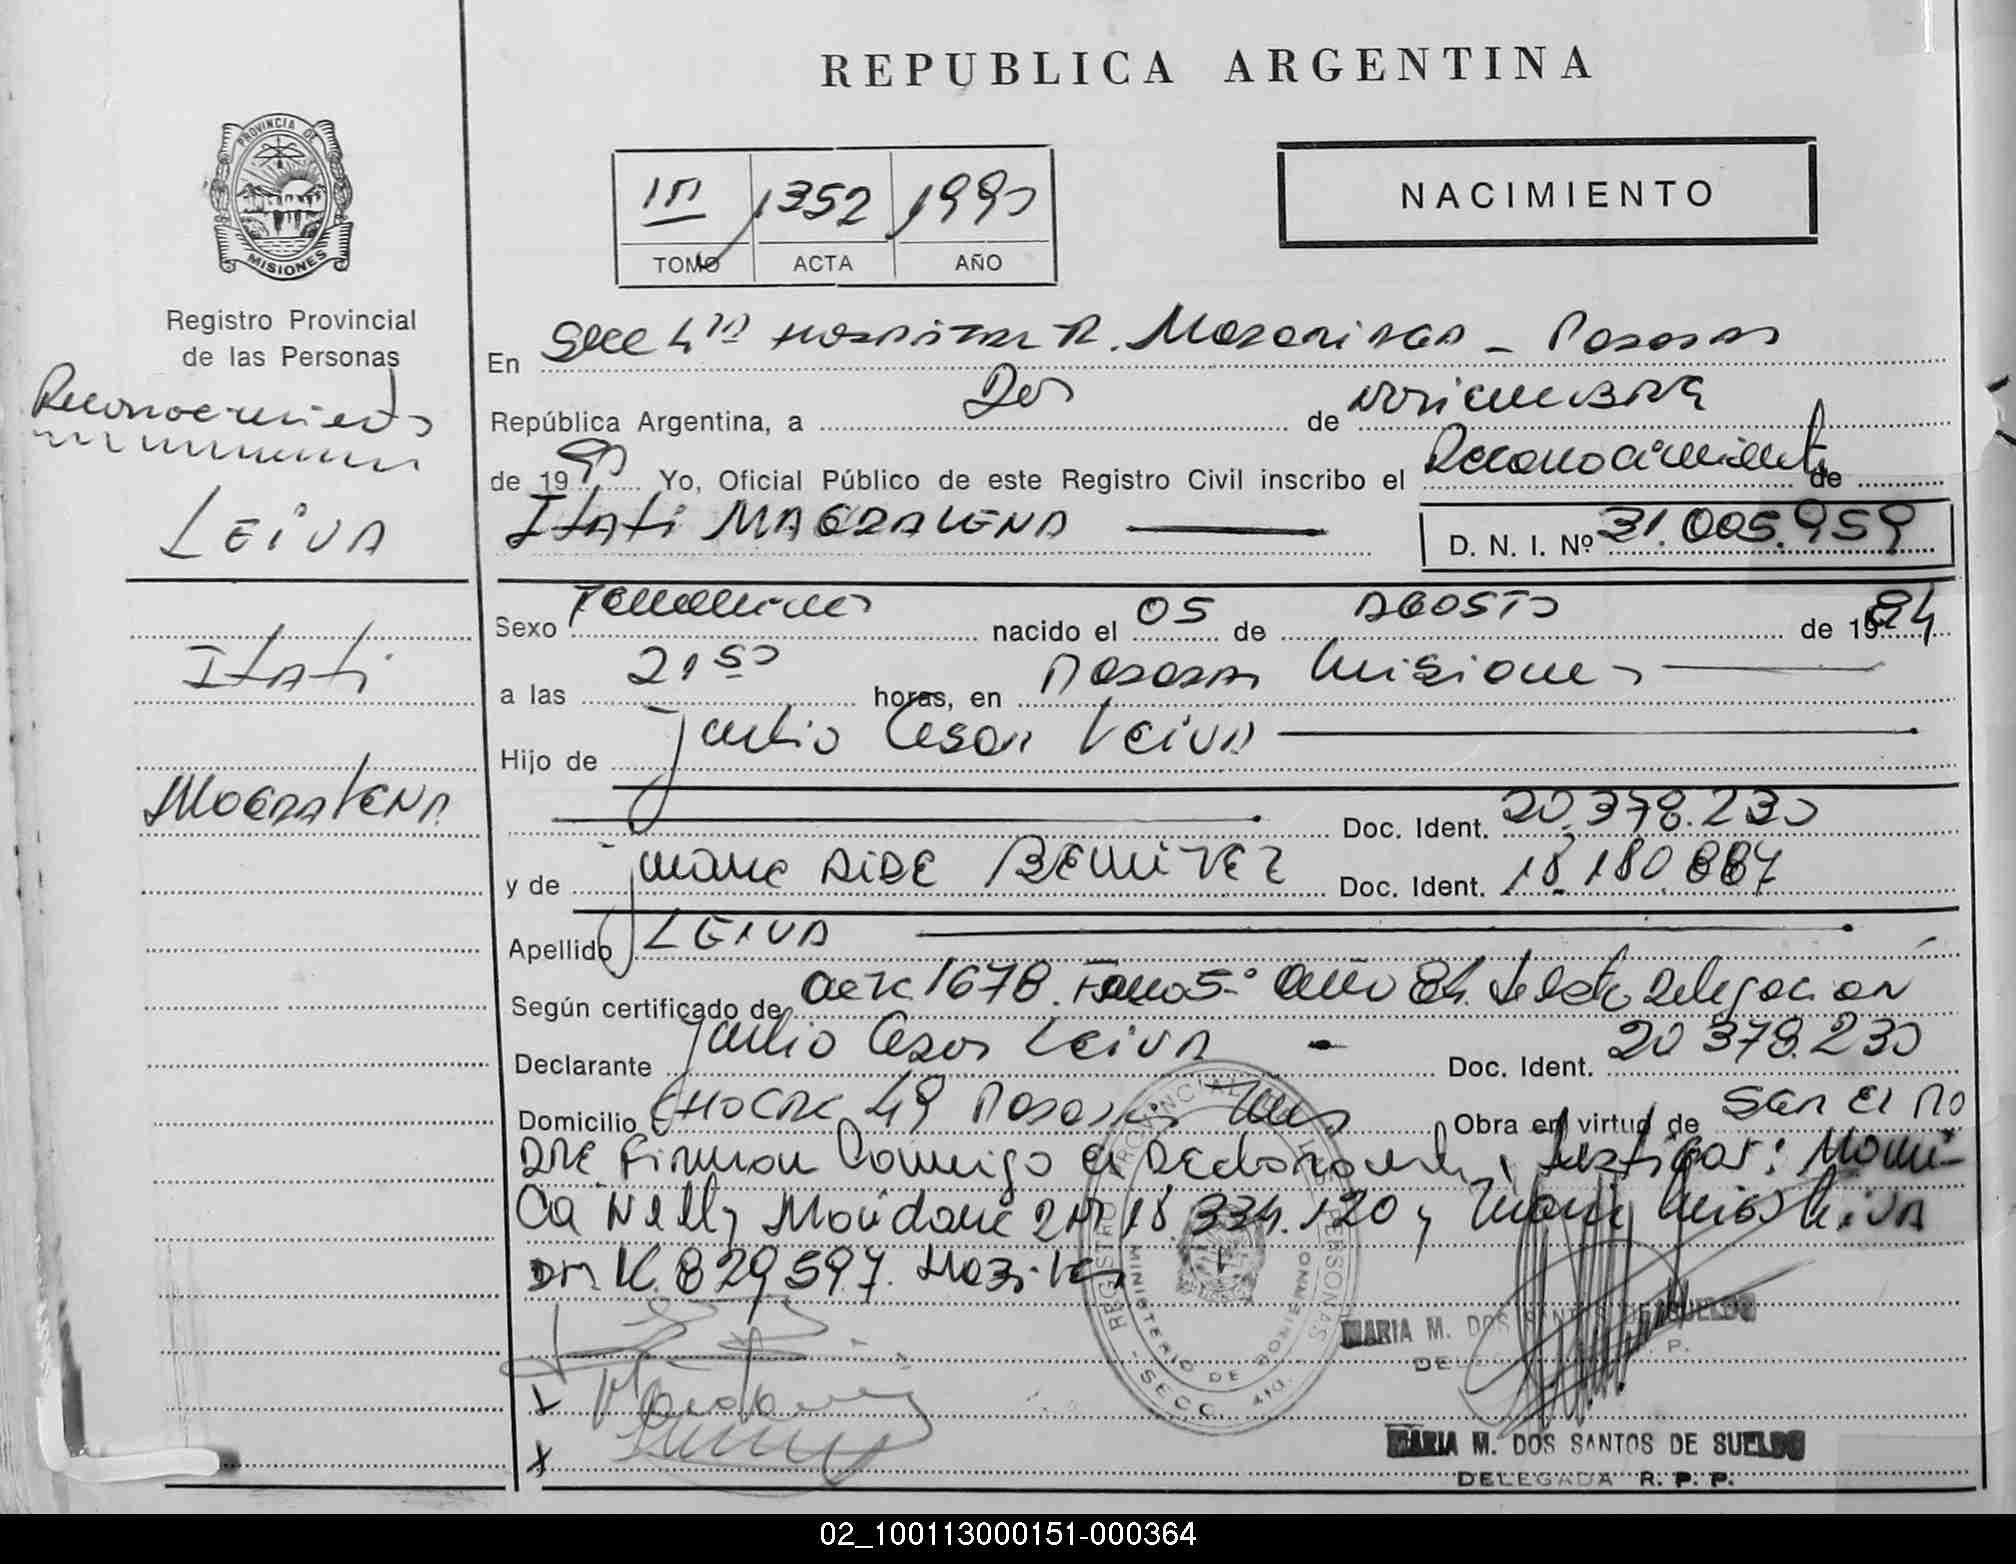 REPUBLICA ARGENTINA
PROVINCIA DE
MISIONES
Registro Provincial
de las Personas
Reconocimiento
LEIVA
Itati
MAGDALENA
III 1352 1990
TOMO ACTA AÑO
NACIMIENTO
En Secc 4ta HOSPITAL R. Madariaga - Posadas
República Argentina, a Dos de Noviembre
de 1990 Yo, Oficial Público de este Registro Civil inscribo el Reconocimiento de
Itati MAGDALENA D. N. I. Nº 31.005.959
Sexo Femenino nacido el 05 de AGOSTO de 1984
a las 21 50 horas, en Posadas Misiones
Hijo de Julio Cesar Leiva
Doc. Ident. 20.378.230
y de Juana AIDE BENITEZ Doc. Ident. 18.180.887
Apellido LEIVA
Según certificado de Acta 1678. Tomo 5º Año 84. de esta Delegacion
Declarante Julio Cesar Leiva - Doc. Ident. 20 378.230
Domicilio CHACRA 49 Posadas Mnes Obra en virtud de Ser el Pa
DRE Firman Conmigo el Declarante y testigos: Moni-
ca Nelly 18.334.120 y Leiva
829597.
REGISTRO PROVINCIAL DE LAS PERSONAS
MINISTERIO DE GOBIERNO
- SECC. 4ta.
MARIA M. DOS SANTOS DE SUELDO
DELEGADA R. P. P.
MARIA M. DOS SANTOS DE SUELDO
DELEGADA R. P. P.
02_100113000151-000364